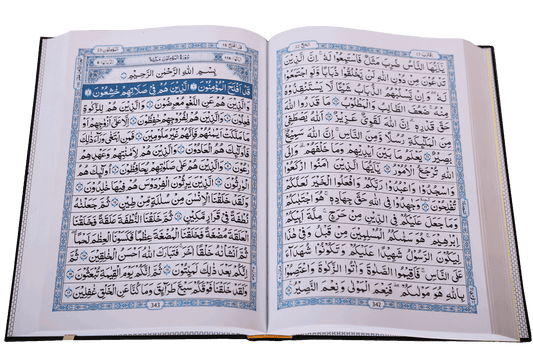 الحج ٢٢
يٰٓاَيُّهَا النَّاسُ ضُرِبَ مَثَلٌ فَاسْتَمِعُوْا لَهٗ اِنَّ الَّذِيْنَ
تَدْعُوْنَ مِنْ دُوْنِ اللّٰهِ لَنْ يَّخْلُقُوْا ذُبَابًا وَّلَوِ اجْتَمَعُوْا
لَهٗ وَاِنْ يَّسْلُبْهُمُ الذُّبَابُ شَيْـًٔا لَّا يَسْتَنْقِذُوْهُ
مِنْهُ ضَعُفَ الطَّالِبُ وَالْمَطْلُوْبُ مَا قَدَرُوا اللّٰهَ
حَقَّ قَدْرِهٖ اِنَّ اللّٰهَ لَقَوِيٌّ عَزِيْزٌ اَللّٰهُ يَصْطَفِيْ
مِنَ الْمَلٰٓئِكَةِ رُسُلًا وَّمِنَ النَّاسِ اِنَّ اللّٰهَ سَمِيْعٌ
بَصِيْرٌ يَعْلَمُ مَا بَيْنَ اَيْدِيْهِمْ وَمَا خَلْفَهُمْ وَاِلَى
اللّٰهِ تُرْجَعُ الْاُمُوْرُ يٰٓاَيُّهَا الَّذِيْنَ اٰمَنُوا ارْكَعُوْا
وَاسْجُدُوْا وَاعْبُدُوْا رَبَّكُمْ وَافْعَلُوا الْخَيْرَ لَعَلَّكُمْ
تُفْلِحُوْنَ وَجَاهِدُوْا فِي اللّٰهِ حَقَّ جِهَادِهٖ هُوَ اجْتَبٰىكُمْ
وَمَا جَعَلَ عَلَيْكُمْ فِي الدِّيْنِ مِنْ حَرَجٍ مِلَّةَ اَبِيْكُمْ
اِبْرٰهِيْمَ هُوَ سَمّٰىكُمُ الْمُسْلِمِيْنَ مِنْ قَبْلُ وَفِيْ هٰذَا
لِيَكُوْنَ الرَّسُوْلُ شَهِيْدًا عَلَيْكُمْ وَتَكُوْنُوْا شُهَدَآءَ
عَلَى النَّاسِ فَاَقِيْمُوا الصَّلٰوةَ وَاٰتُوا الزَّكٰوةَ وَاعْتَصِمُوْا
بِاللّٰهِ هُوَ مَوْلٰىكُمْ فَنِعْمَ الْمَوْلٰى وَنِعْمَ النَّصِيْرُ
342
قد افلح ١٨ المؤمنون ٢٣
بِسْمِ اللّٰهِ الرَّحْمٰنِ الرَّحِيْمِ
قَدْ اَفْلَحَ الْمُؤْمِنُوْنَ الَّذِيْنَ هُمْ فِيْ صَلَاتِهِمْ خٰشِعُوْنَ
وَالَّذِيْنَ هُمْ عَنِ اللَّغْوِ مُعْرِضُوْنَ وَالَّذِيْنَ هُمْ لِلزَّكٰوةِ
فٰعِلُوْنَ وَالَّذِيْنَ هُمْ لِفُرُوْجِهِمْ حٰفِظُوْنَ اِلَّا عَلٰٓى اَزْوَاجِهِمْ اَوْ مَا
مَلَكَتْ اَيْمَانُهُمْ فَاِنَّهُمْ غَيْرُ مَلُوْمِيْنَ فَمَنِ ابْتَغٰى وَرَآءَ ذٰلِكَ
فَاُولٰٓئِكَ هُمُ الْعٰدُوْنَ وَالَّذِيْنَ هُمْ لِاَمٰنٰتِهِمْ وَعَهْدِهِمْ
رٰعُوْنَ وَالَّذِيْنَ هُمْ عَلٰى صَلَوٰتِهِمْ يُحَافِظُوْنَ اُولٰٓئِكَ هُمُ
الْوٰرِثُوْنَ الَّذِيْنَ يَرِثُوْنَ الْفِرْدَوْسَ هُمْ فِيْهَا خٰلِدُوْنَ
وَلَقَدْ خَلَقْنَا الْاِنْسَانَ مِنْ سُلٰلَةٍ مِّنْ طِيْنٍ ثُمَّ جَعَلْنٰهُ
نُطْفَةً فِيْ قَرَارٍ مَّكِيْنٍ ثُمَّ خَلَقْنَا النُّطْفَةَ عَلَقَةً فَخَلَقْنَا
الْعَلَقَةَ مُضْغَةً فَخَلَقْنَا الْمُضْغَةَ عِظٰمًا فَكَسَوْنَا الْعِظٰمَ لَحْمًا
ثُمَّ اَنْشَاْنٰهُ خَلْقًا اٰخَرَ فَتَبٰرَكَ اللّٰهُ اَحْسَنُ الْخٰلِقِيْنَ ثُمَّ
اِنَّكُمْ بَعْدَ ذٰلِكَ لَمَيِّتُوْنَ ثُمَّ اِنَّكُمْ يَوْمَ الْقِيٰمَةِ تُبْعَثُوْنَ
وَلَقَدْ خَلَقْنَا فَوْقَكُمْ سَبْعَ طَرَآئِقَ وَمَا كُنَّا عَنِ الْخَلْقِ غٰفِلِيْنَ
343